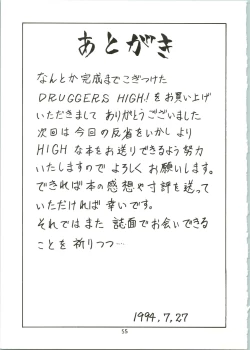 あとがき
なんとか完成までこぎつけた
DRUGGERS HIGH!を お買い上げ
いただきまして ありがとうございました
次回は 今回の反省をいかし より
HIGH な本をお送りできるよう努力
いたしますので よろしくお願いします。
できれば本の感想や寸評を送って
いただければ 幸いです。
それではまた 誌面でお会いできる
ことを 祈りつつ…
1994.7.27
55